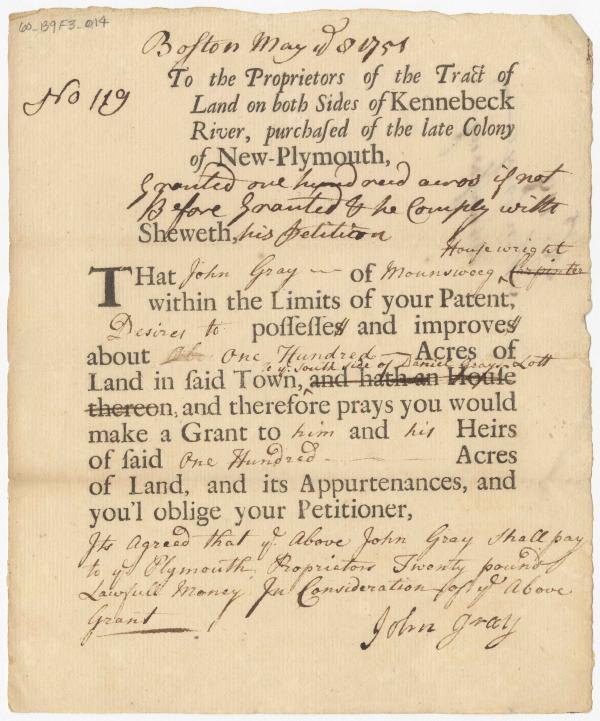 60_B9F3_014
Boston May ye 8 1751
No 119
To the Proprietors of the Tract of
Land on both Sides of Kennebeck
River, purchaſed of the late Colony
of New-Plymouth,
Granted one hundred acres if not
Before Granted & he Comply with
Sheweth, his Petition
Housewright
THat John Gray of Mounsweeg Carpinter
within the Limits of your Patent,
Desires to poſſeſſes and improves
about One Hundred Acres of
to ye South side of Daniel Grays Lott
Land in ſaid Town, and hath an Houſe
thereon, and therefore prays you would
make a Grant to him and his Heirs
of ſaid One Hundred Acres
of Land, and its Appurtenances, and
you'l oblige your Petitioner,
Its Agreed that ye Above John Gray Shall pay
to ye Plymouth Proprietors Twenty pound
Lawfull Money In Consideration for ye Above
Grant
John Gray